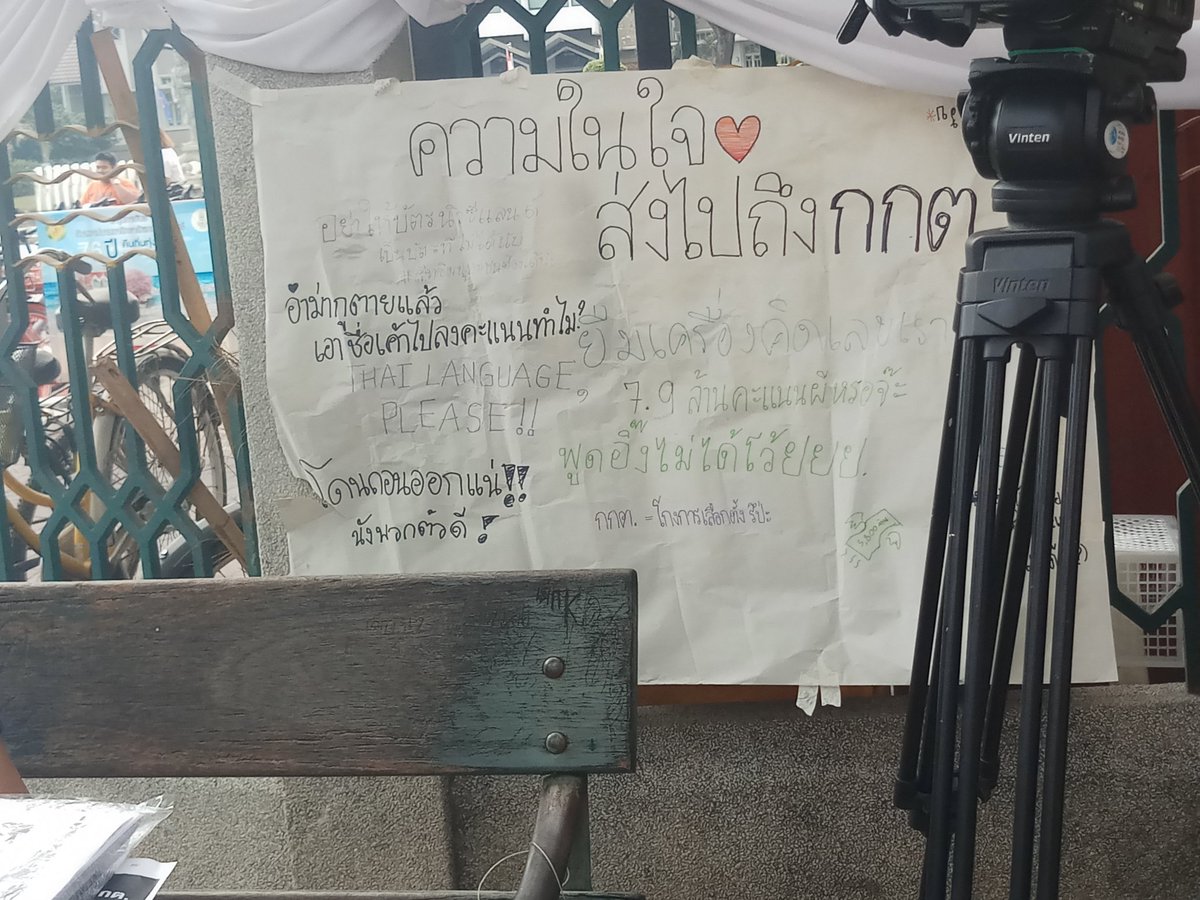 ความในใจ
ส่งไปถึงกกต
อย่าให้บัตรนิวซีแลนด์
อาม่ากูตายแล้ว
เอาชื่อเค้าไปลงคะแนนทำไม?
THAI LANGUAGE
PLEASE!!
ยืมเครื่องคิดเลขเรา
7.9 ล้านคะแนนผีหรอจ๊ะ
พูดอิ๊งไม่ได้โว้ยยย.
โดนถอนออกแน่!!
นังพวกตัวดี!
กกต. = โกงการเลือกตั้ง รึป่ะ
Vinten
Vinten
ปี